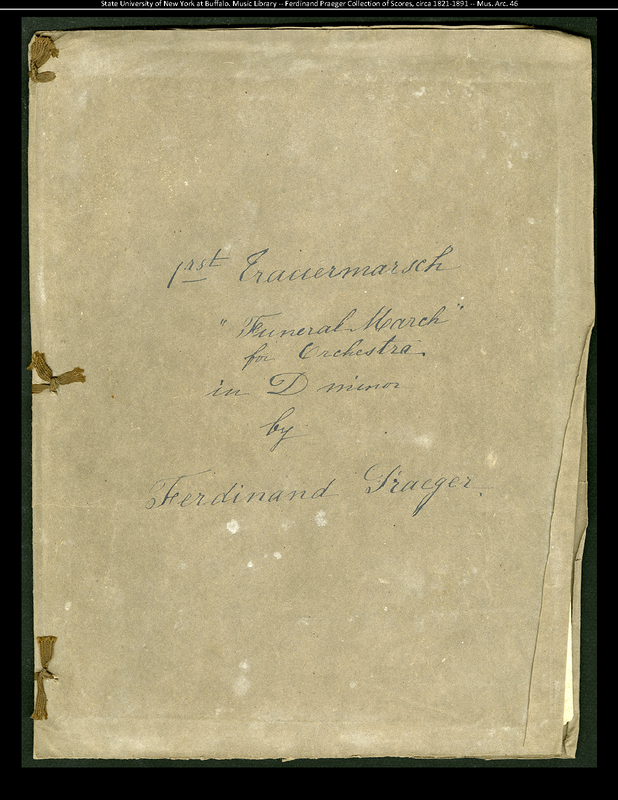 State University of New York at Buffalo. Music Library -- Ferdinand Praeger Collection of Scores, circa 1821-1891 -- Mus. Arc. 46
1rst Trauermarsch
"Funeral March"
for Orchestra.
in D minor
by
Ferdinand Praeger.